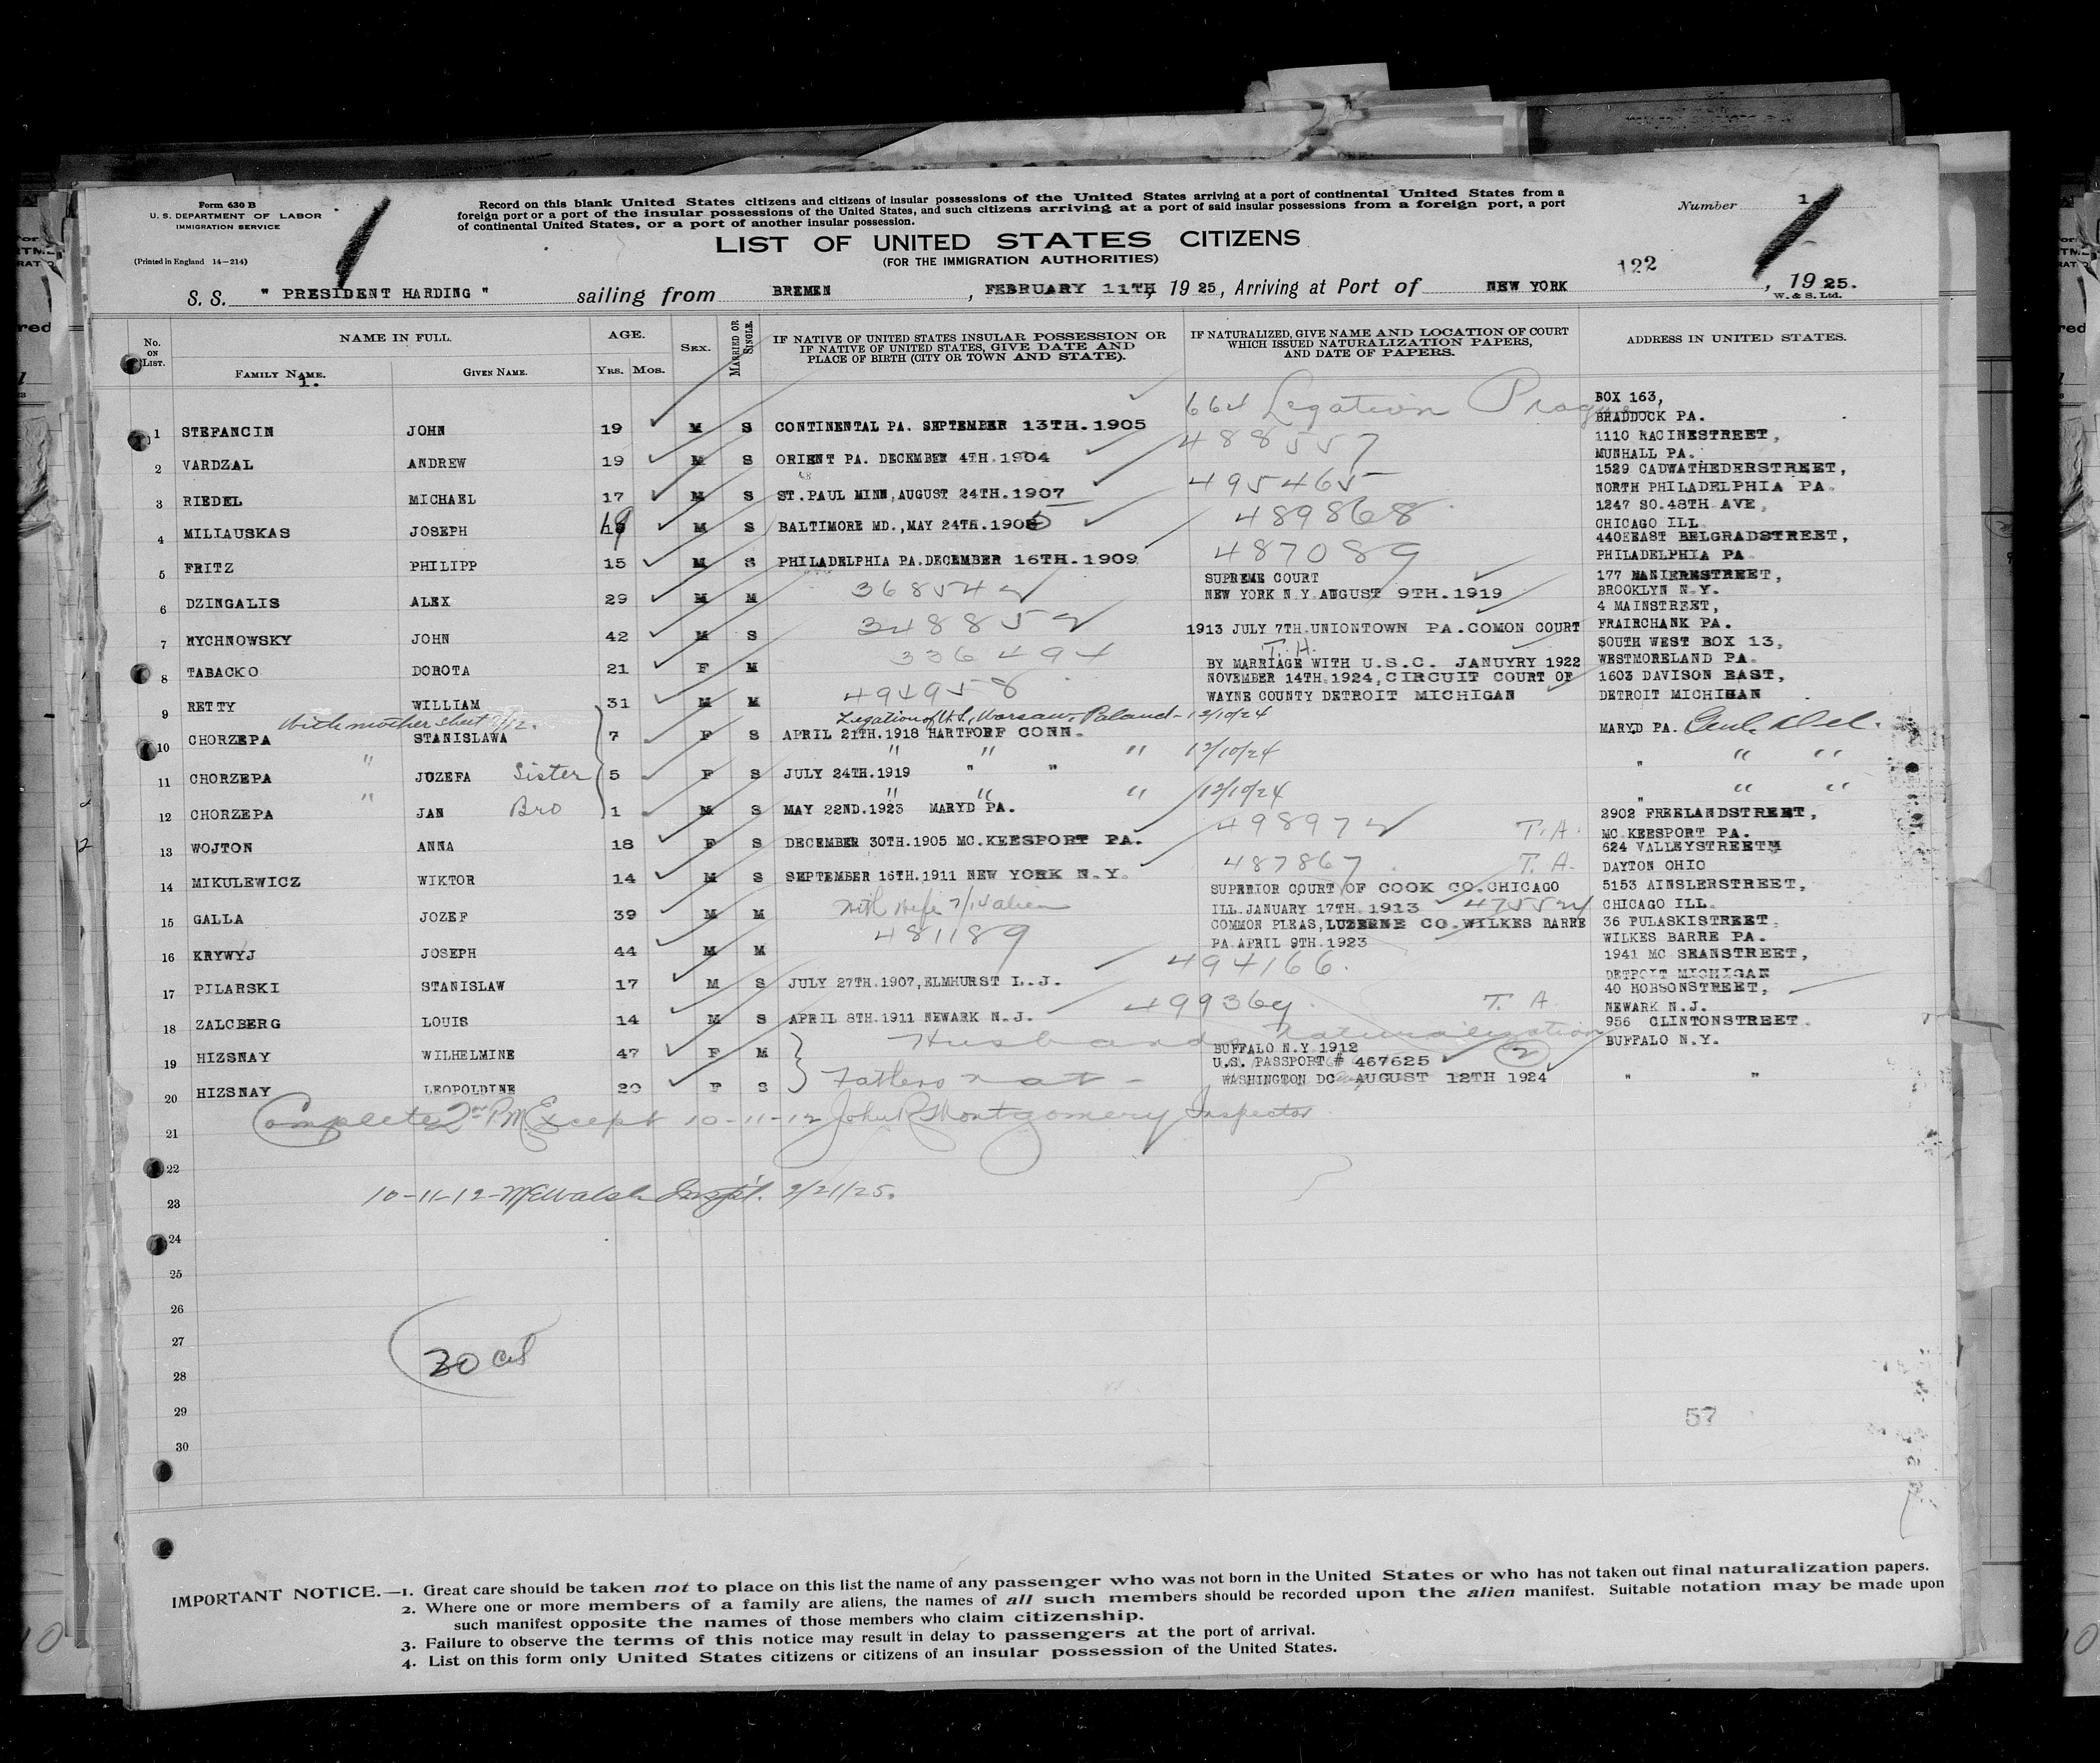 Form 630 B
U. S. DEPARTMENT OF LABOR
IMMIGRATION SERVICE
(Printed in England 14—214)
Record on this blank United States citizens and citizens of insular possessions of the United States arriving at a port of continental United States from a
foreign port or a port of the insular possessions of the United States, and such citizens arriving at a port of said insular possessions from a foreign port, a port
of continental United States, or a port of another insular possession.
Number 1
LIST OF UNITED STATES CITIZENS
(FOR THE IMMIGRATION AUTHORITIES)
122
S. S. " PRESIDENT HARDING " sailing from BREMEN , FEBRUARY 11TH, 19 25, Arriving at Port of NEW YORK , 19 25.
W. & S. Ltd.
No. ON LIST. NAME IN FULL. AGE. SEX. MARRIED OR SINGLE. IF NATIVE OF UNITED STATES INSULAR POSSESSION OR IF NATIVE OF UNITED STATES, GIVE DATE AND PLACE OF BIRTH (CITY OR TOWN AND STATE). IF NATURALIZED, GIVE NAME AND LOCATION OF COURT WHICH ISSUED NATURALIZATION PAPERS, AND DATE OF PAPERS. ADDRESS IN UNITED STATES.
FAMILY NAME. GIVEN NAME. YRS. MOS.
1.
664 Legation Prague BOX 163,
1 STEFANCIN JOHN 19 M S CONTINENTAL PA. SEPTEMBER 13TH.1905 BRADDOCK PA.
488557 1110 RACINESTREET,
2 VARDZAL ANDREW 19 M S ORIENT PA. DECEMBER 4TH.1904 MUNHALL PA.
495465 1529 CADWATHEDERSTREET,
3 RIEDEL MICHAEL 17 M S ST.PAUL MINN,AUGUST 24TH.1907 NORTH PHILADELPHIA PA.
489868 1247 SO.48TH AVE,
4 MILIAUSKAS JOSEPH 19 M S BALTIMORE MD.,MAY 24TH.1905 CHICAGO ILL
487089 440EEAST BELGRADSTREET,
5 FRITZ PHILIPP 15 M S PHILADELPHIA PA.DECEMBER 16TH.1909 PHILADELPHIA PA
368542 SUPREME COURT 177 STREET,
6 DZINGALIS ALEX 29 M M NEW YORK N.Y.AUGUST 9TH.1919 BROOKLYN N.Y.
348852 4 MAINSTREET,
7 RYCHNOWSKY JOHN 42 M S 1913 JULY 7TH.UNIONTOWN PA.COMON COURT FRAIRCHANK PA.
336494 T.H. SOUTH WEST BOX 13,
8 TABACKO DOROTA 21 F M BY MARRIAGE WITH U.S.C. JANUYRY 1922 WESTMORELAND PA.
494958 NOVEMBER 14TH.1924,CIRCUIT COURT OF 1603 DAVISON EAST,
9 RETTY WILLIAM 31 M M WAYNE COUNTY DETROIT MICHIGAN DETROIT MICHIGAN
With mother sheet 7/12. Legation of U.S., Warsaw, Poland - 12/10/24
10 CHORZEPA STANISLAWA 7 F S APRIL 21TH.1918 HARTFORF CONN. MARYD PA.
" " " " 12/10/24
11 CHORZEPA JOZEFA Sister 5 F S JULY 24TH.1919 " " " " "
" " " " 12/10/24
12 CHORZEPA JAN Bro 1 M S MAY 22ND.1923 MARYD PA. " " "
498972 T.A. 2902 FREELANDSTREET,
13 WOJTON ANNA 18 F S DECEMBER 30TH.1905 MC.KEESPORT PA. MC.KEESPORT PA.
487867 T.A. 624 VALLEYSTREETM
14 MIKULEWICZ WIKTOR 14 M S SEPTEMBER 16TH.1911 NEW YORK N.Y. DAYTON OHIO
With wife 7/14 alien SUPRERIOR COURT OF COOK CO.CHICAGO 5153 AINSLERSTREET,
15 GALLA JOZEF 39 M M ILL.JANUARY 17TH.1913 475524 CHICAGO ILL.
481189 COMMON PLEAS,LUZERNE CO.WILKES BARRE 36 PULASKISTREET,
16 KRYWYJ JOSEPH 44 M M PA.APRIL 9TH.1923 WILKES BARRE PA.
494166. 1941 MC SEANSTREET,
17 PILARSKI STANISLAW 17 M S JULY 27TH.1907,ELMHURST L.J. DETROIT MICHIGAN
499369 T. A. 40 HOBSONSTREET,
18 ZALCBERG LOUIS 14 M S APRIL 8TH.1911 NEWARK N.J. NEWARK N.J.
Husbands Naturalization 956 CLINTONSTREET.
19 HIZSNAY WILHELMINE 47 F M BUFFALO N.Y.1912 BUFFALO N.Y.
U.S. PASSPORT # 467625 2
20 HIZSNAY LEOPOLDINE 20 F S Fathers nat - WASHINGTON DC AUGUST 12TH 1924 " "
Complete 2nd P.M. Except 10-11-12 John R Montgomery Inspector
21
22
10-11-12- McWalsh Inspt. 2/21/25.
23
24
25
26
27
20
28
29
57
30
IMPORTANT NOTICE.—1. Great care should be taken not to place on this list the name of any passenger who was not born in the United States or who has not taken out final naturalization papers.
2. Where one or more members of a family are aliens, the names of all such members should be recorded upon the alien manifest. Suitable notation may be made upon
such manifest opposite the names of those members who claim citizenship.
3. Failure to observe the terms of this notice may result in delay to passengers at the port of arrival.
4. List on this form only United States citizens or citizens of an insular possession of the United States.